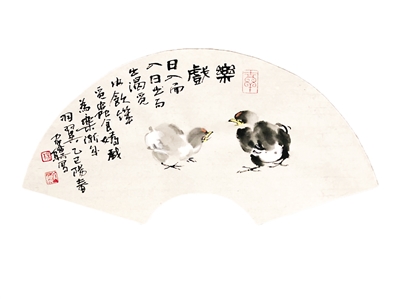 樂
戲
日入而
入日出而
出渴覓
水飲饑
覓食嬉戲
為樂漸
羽翼乙巳陽春
寫